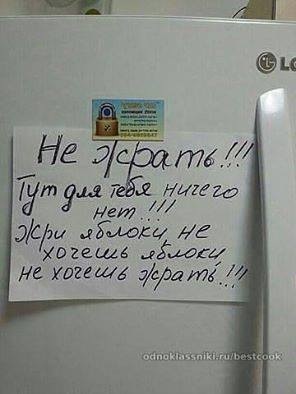 LG
Не жрать!!!
Тут для тебя ничего
нет!!!
Жри яблоки, не
хочешь яблоки,
не хочешь жрать!!!
odnoklassniki.ru/bestcook